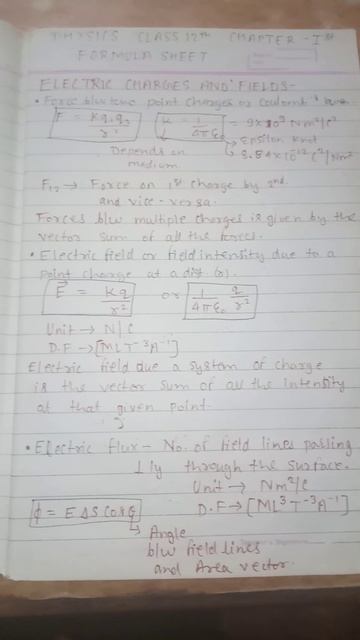 PHYSICS CLASS 12TH CHAPTER - 1st
FORMULA SHEET
ELECTRIC CHARGES AND FIELDS -
• Force b/w two point charges or Coulomb's
F = Kq1q2/r² K = 1/4πε0 = 9×10⁹ Nm²/C²
Epsilon knot
Depends on medium
8.84×10⁻¹² C²/Nm²
F12 → Force on 1st charge by 2nd
and vice-versa.
Forces b/w multiple charges is given by the
vector sum of all the forces.
• Electric field or field intensity due to a
point charge at a dist (r).
E = Kq/r² or 1/4πε0 q/r²
Unit → N/C
D.F → [MLT⁻³A⁻¹]
Electric field due a system of charge
is the vector sum of all the intensity
at that given point.
• Electric flux - No. of field lines passing
⊥ly through the surface.
Unit → Nm²/C
ϕ = EΔS Cosθ D.F → [ML³T⁻³A⁻¹]
Angle
b/w field lines
and Area vector.